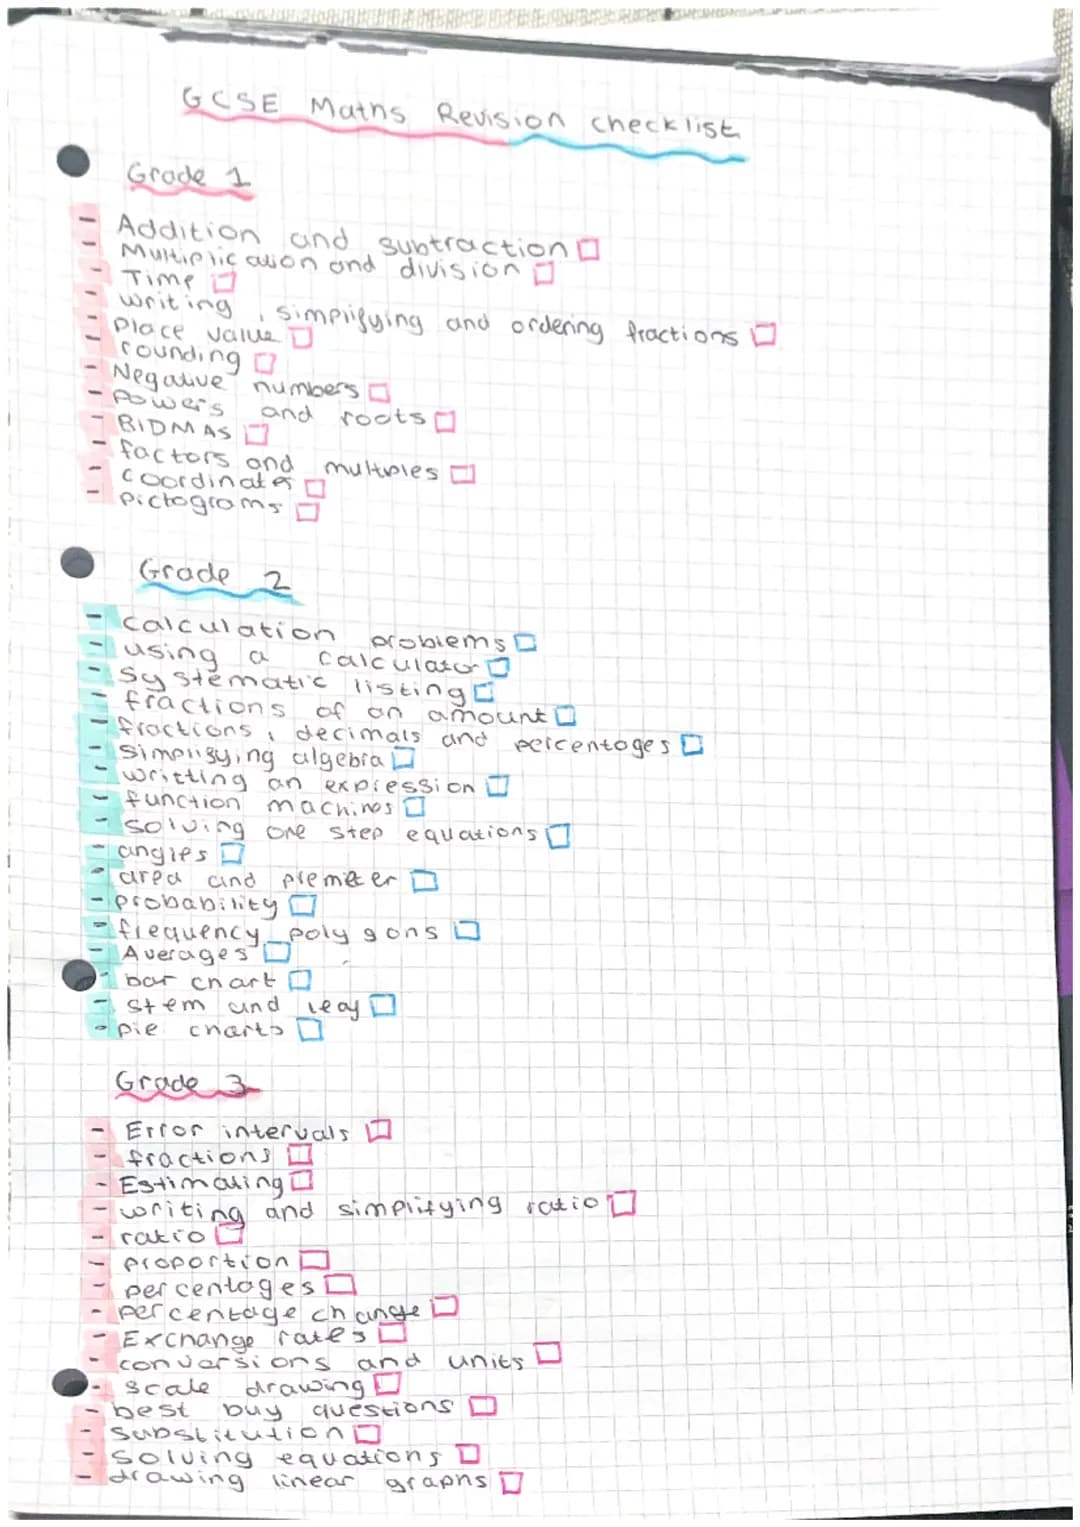 GCSE Maths Revision checklist
Grade 1
- Addition and subtraction
- Multiplication and division
- Time
- writing, simplifying and ordering fractions
- Place value
- rounding
- Negative numbers
- Powers and roots
- BIDMAS
- factors and multiples
- coordinates
- Pictograms
Grade 2
- calculation problems
- using a calculator
- systematic listing
- fractions of an amount
- fractions, decimals and percentages
- simplifying algebra
- writting an expression
- function machines
- solving one step equations
- angles
- area and piemeter
- probability
- frequency polygons
- Averages
- bar chart
- stem and leaf
- pie charts
Grade 3
- Error intervals
- fractions
- Estimating
- writing and simplifying ratio
- ratio
- proportion
- percentages
- percentage change
- Exchange rates
- conversions and units
- scale drawing
- best buy questions
- substitution
- solving equations
- drawing linear graphs